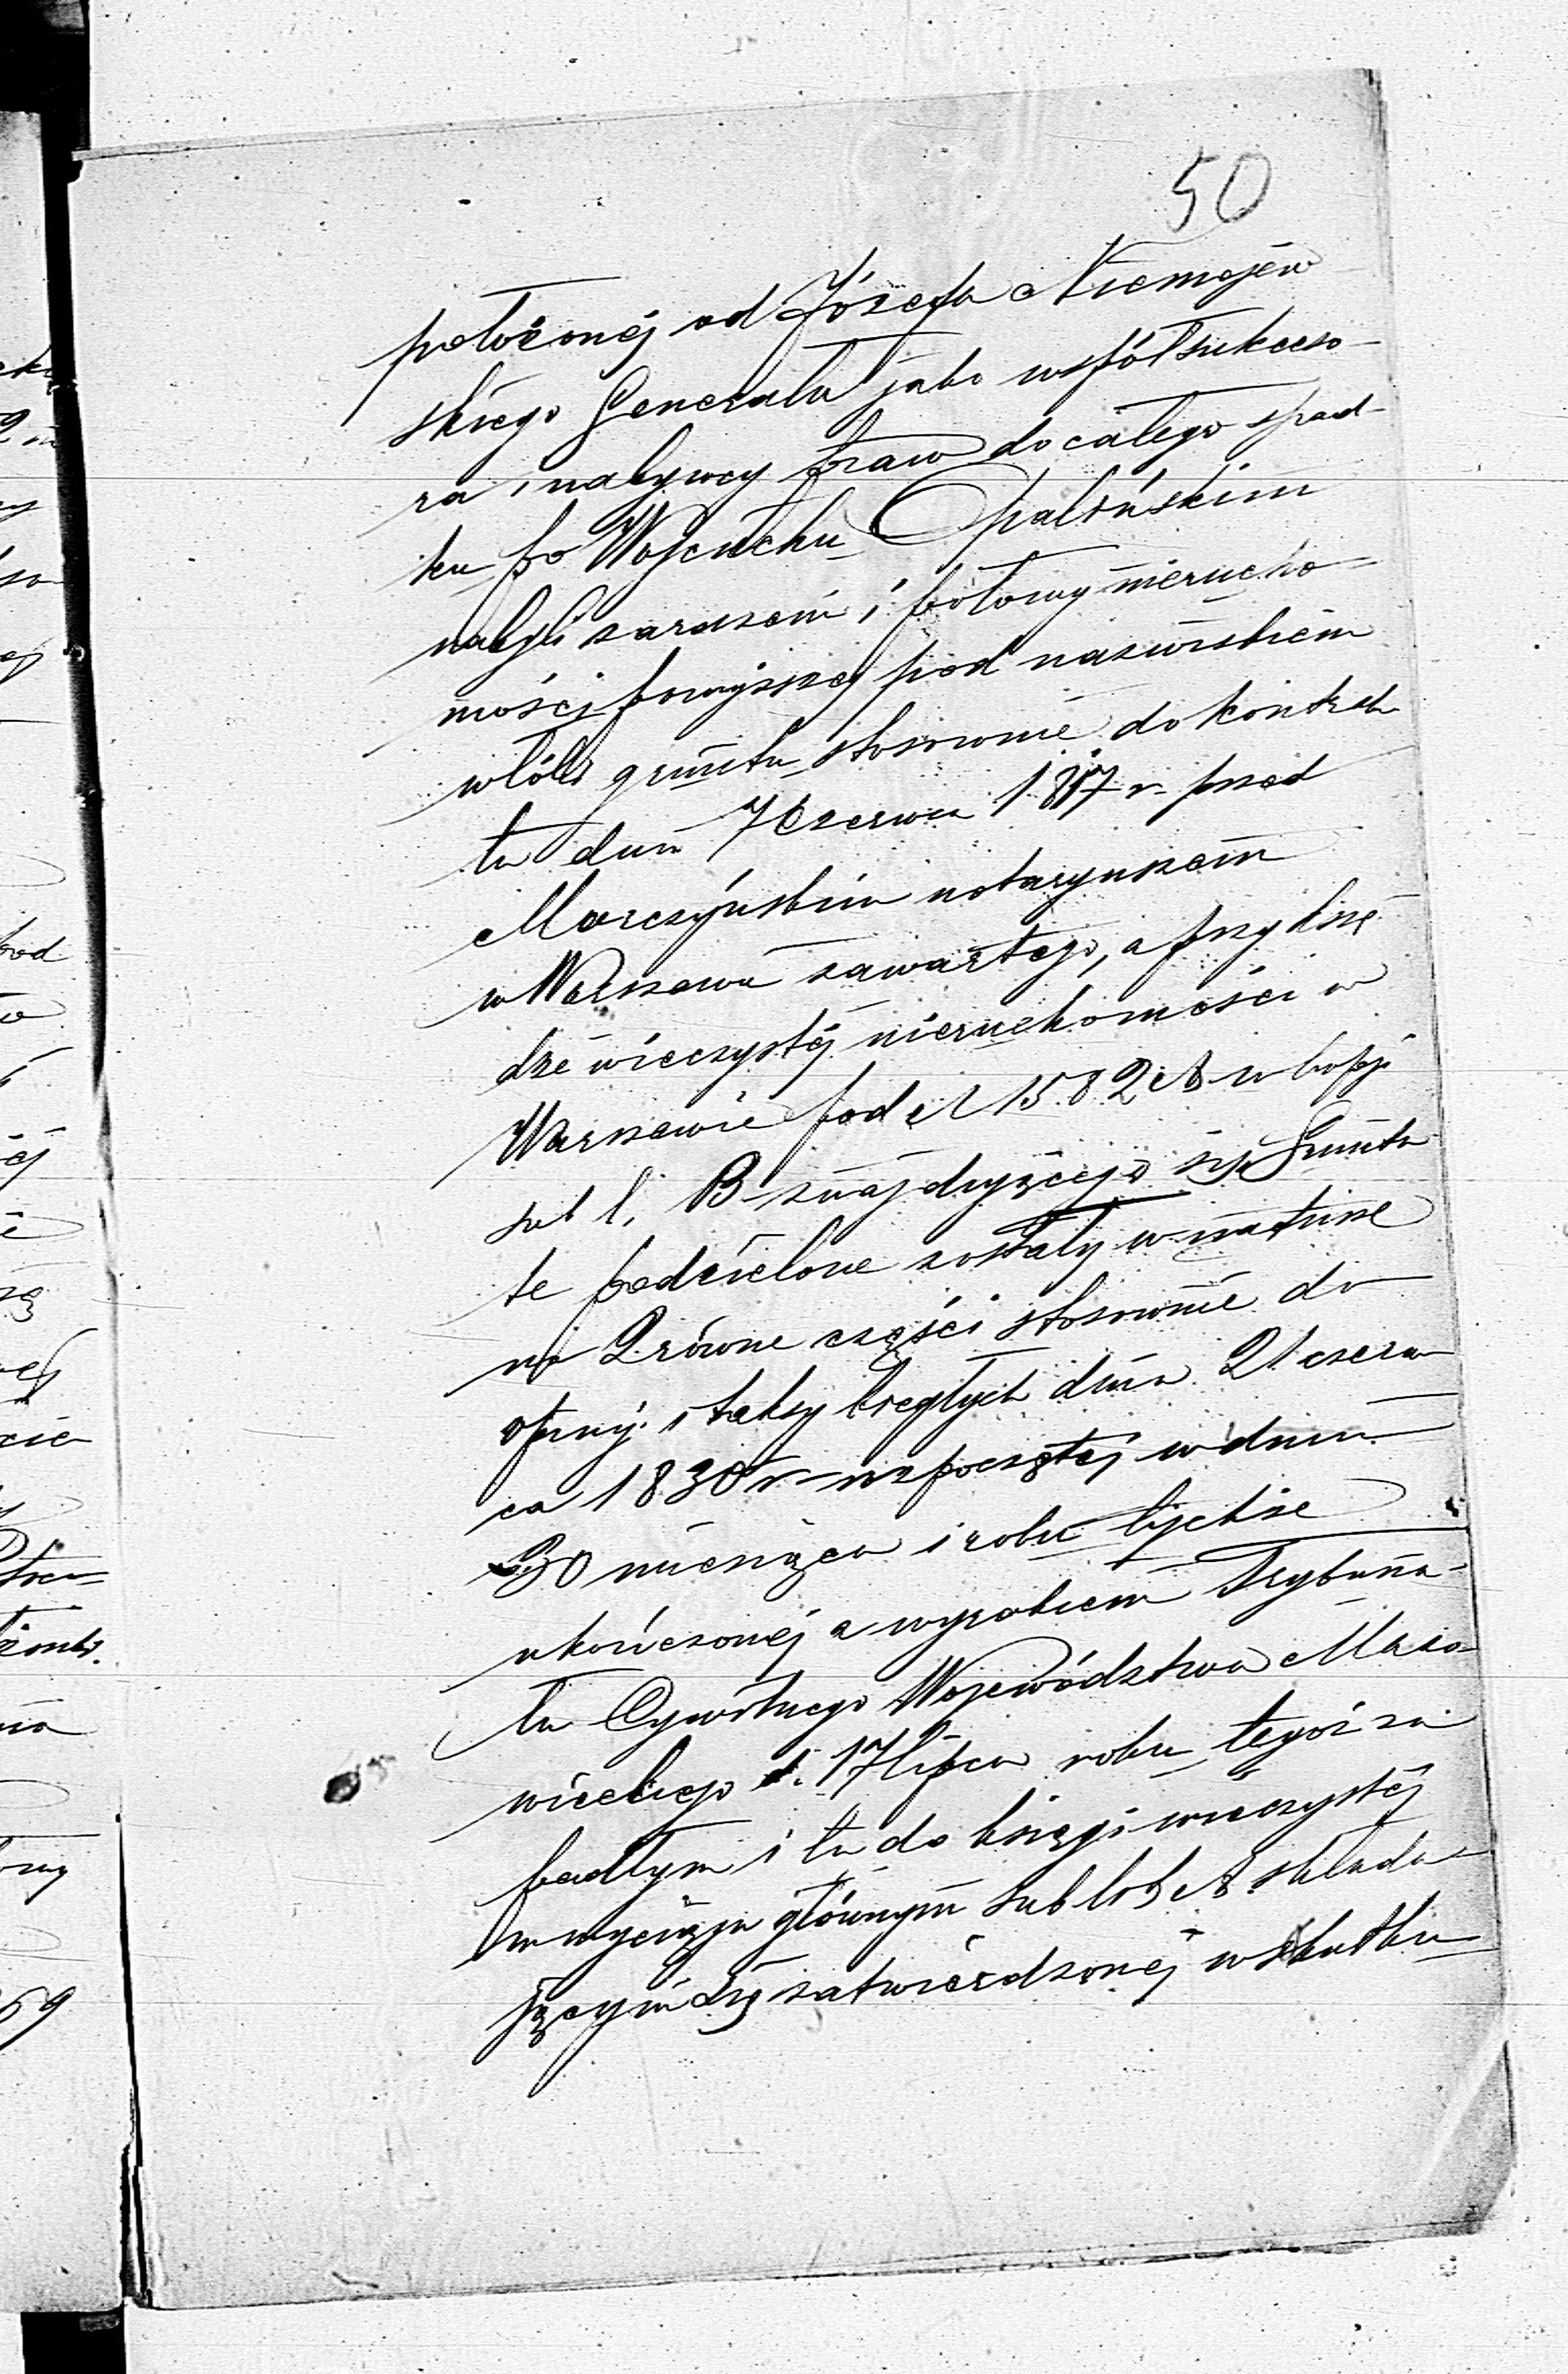 50
położonéj od Józefa Niemojew
skiego Generała jako współsukceso-
ra i nabywcy praw do całego spad-
ku po Wojciechu Opalińskim
nabyli zarazem i połowy nierucho-
mości powyższej pod nazwiskiem
włók gruntu stosownie do kontrak
tu dnia 7 Czerwca 1817 r. przed
Morczyńskim notaryuszem
w Warszawie zawartego, a przy księ
dze wieczystéj nieruchomości w
Warszawie pod N 1582 A w kopji
sub l. B znajdującego się Grunta
te podzielone zostały w naturze
na 2 równe części stosownie do
opinji i taksy biegłych dnia 21 czerw
ca 1830 r. rozpoczętej w dniu
30 miesiąca i roku tychże
ukończonéj a wyrokiem Trybuna-
łu Cywilnego Województwa Mazo-
wieckiego d. 17 lipca roku tegoż za
padłym i tu do księgi wieczystéj
w wyciągu głównym sub lit A. składa-
jącym się zatwierdzonéj w skutku